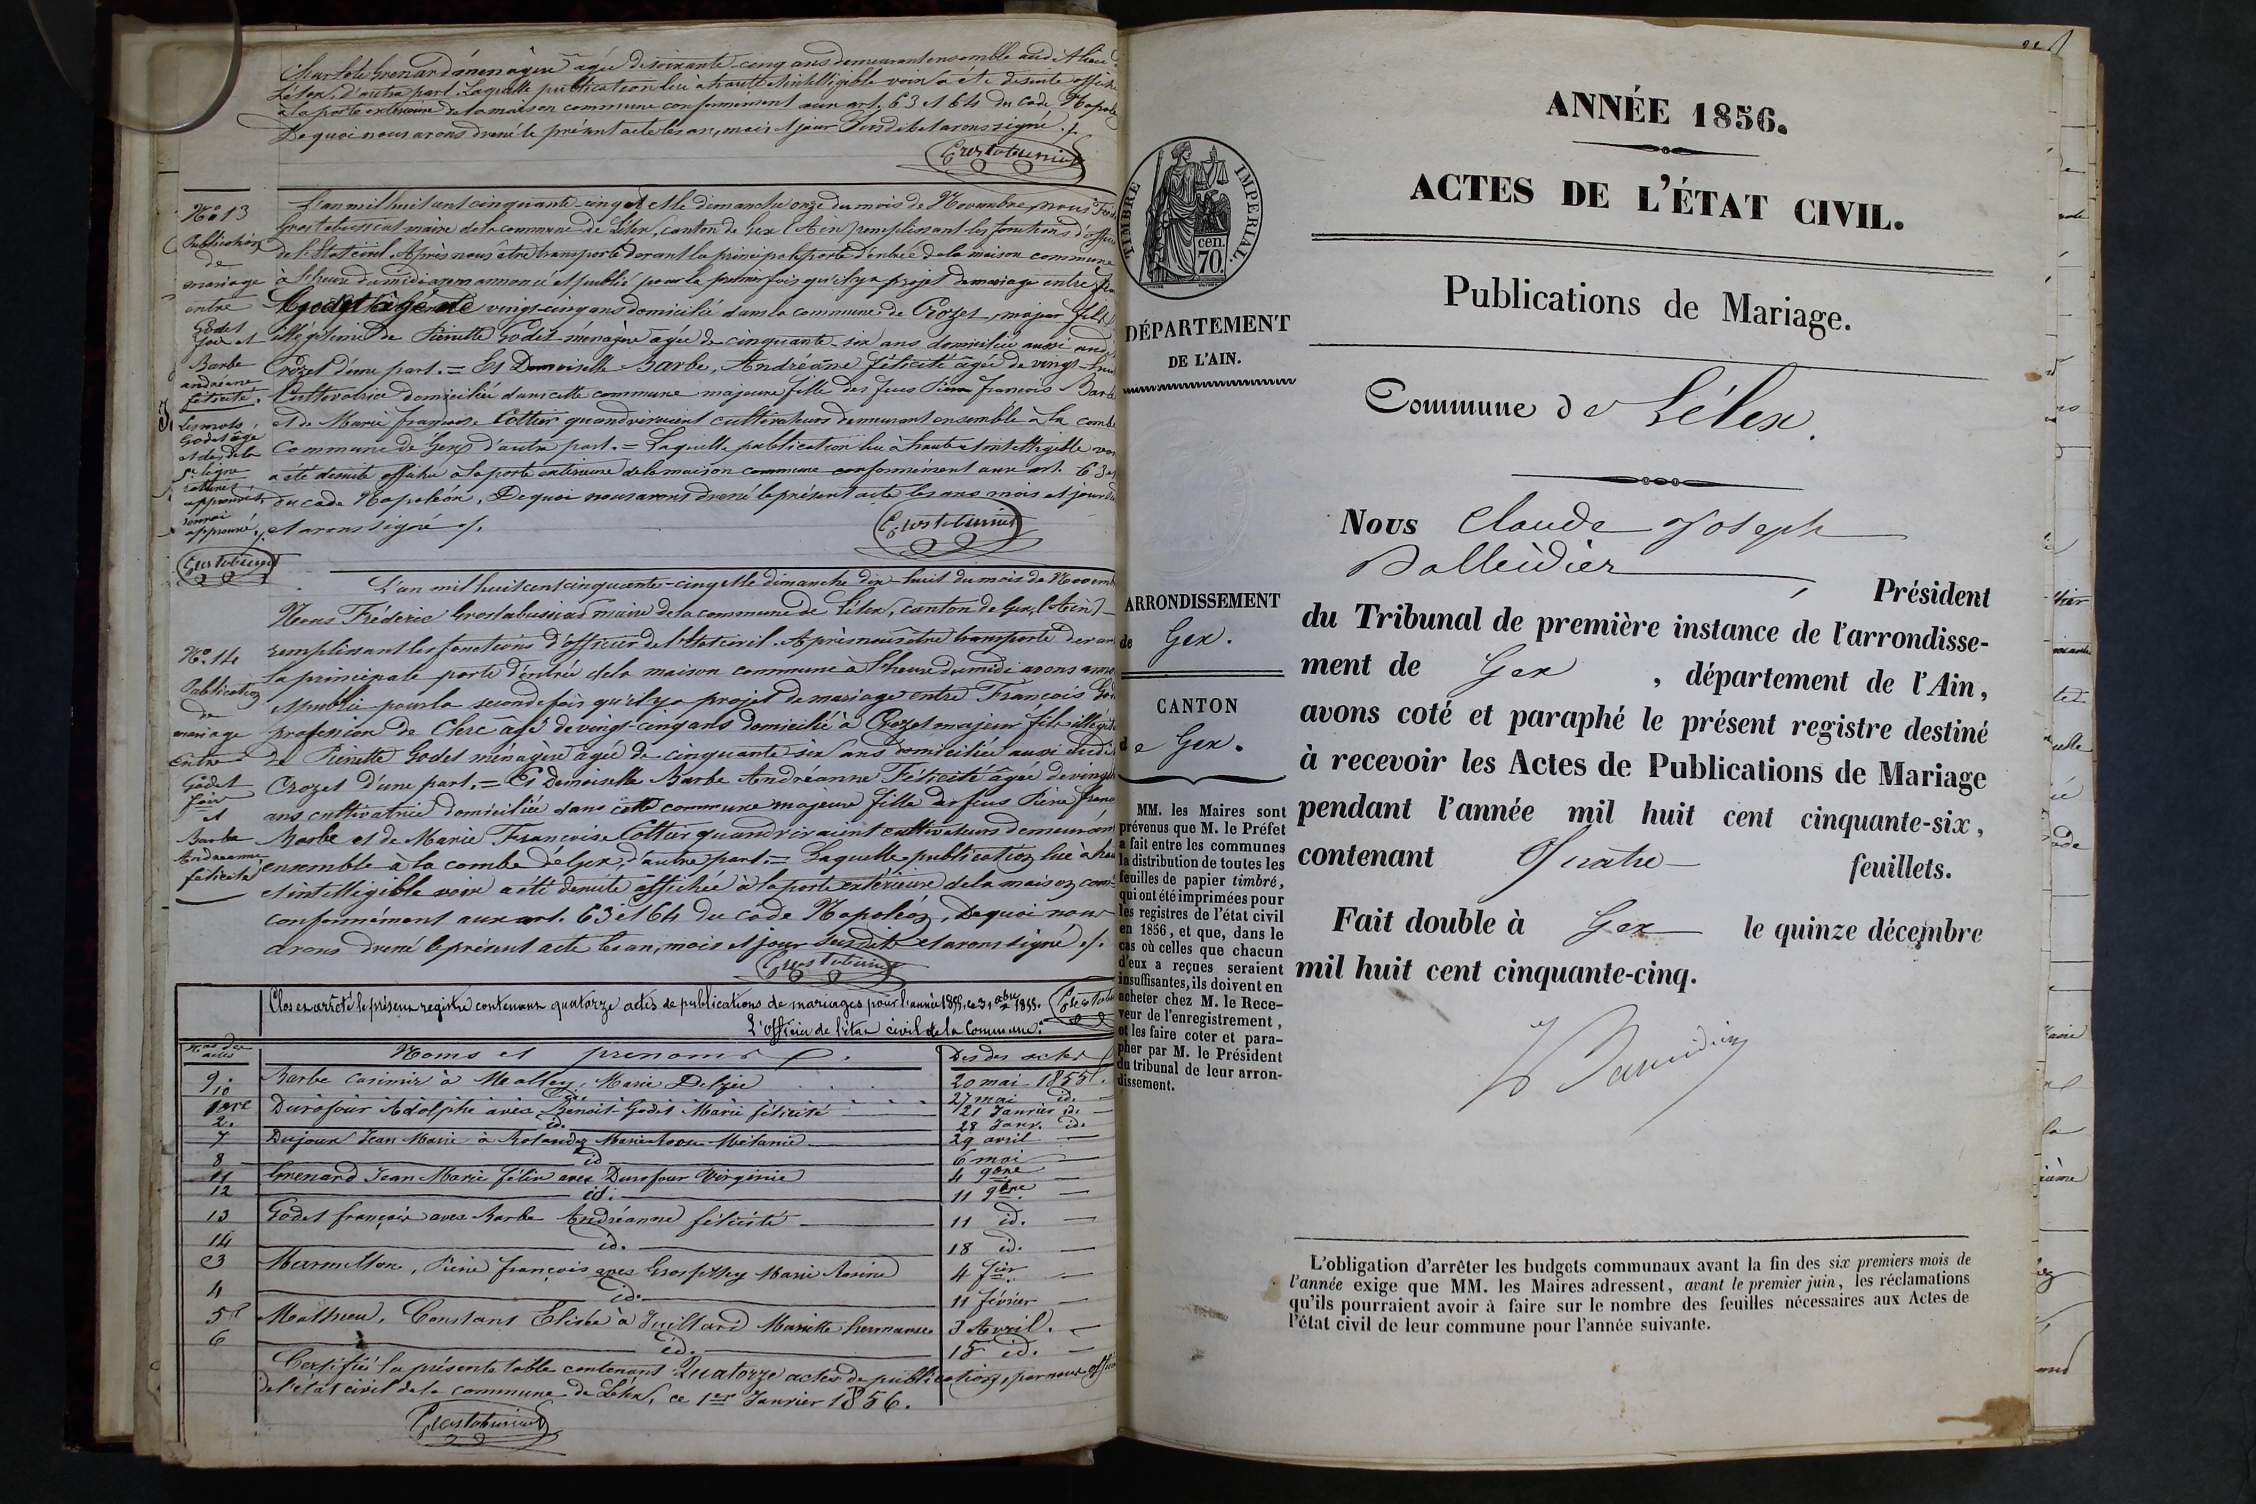 Charlotte Grenard ménagère agée de soixante-cinq ans demeurant ensemble audit lieu
Lélex, d'autre part. Laquelle publication lue à haute et intelligible voix a été desuite affichée
à la porte exterieure de la maison commune conformément aux art. 63 et 64 du Code Napoléon
De quoi nous avons dressé le présent acte les an, mois et jour susdits et avons signé ./.
Grostabussiat
N.º 13
Publication
de
mariage
entre
Godet
foix et
Barbe
andréane
félicité.
Les mots
Godet âgé
et de, de la
5e ligne
rattures
approuvés,
renvoi
approuvé ./.
Grostabussiat
L'an mil huit cent cinquante-cinq et le dimanche onze du mois de Novembre, nous Fréd
Grostabussiat maire de la commune de Lélex, canton de Gex (Ain) remplissant les fonctions d'offici
de l'Etat civil. Après nous être transporté devant la principale porte d'entrée de la maison commune
à l'heure du midi avons annoncé et publié pour la premiere fois qu'il y a projet de mariage entre
Godet âgé de vingt-cinq ans domicilié dans la commune de Crozet, majeur fils
illégitime de Pierrette Godet ménagère agée de cinquante-six ans domiciliée aussi aud
Crozet d'une part. = Et Demoiselle Barbe, Andréane félicité âgée de vingt
Cultivatrice domiciliée dans cette commune majeure fille des feus Pierre françois Barbe
et de Marie françoise Cottier quand vivaient cultivateurs demeurant ensemble à la combe
Commune de Gex d'autre part. = Laquelle publication lue à haute et intelligible voix
a été desuite affichée à la porte exterieure de la maison commune conformément aux art. 63 et
du code Napoléon, De quoi nous avons dressé le présent acte les ans mois et jour
et avons signé ./.
Grostabussiat
N.º 14
Publication
de
mariage
entre
Godet
foix
et
Barbe
Andréanne
félicité
L'an mil huit cent cinquante-cinq et le dimanche dix-huit du mois de Novemb
Nous Fréderic Grostabussiat maire de la commune de Lélex, canton de Gex, (Ain)
remplissant les fonctions d'officier de l'Etat civil. Après nous être transporté devant
la principale porte d'entrée de la maison commune à l'heure du midi avons anno
et publié pour la seconde fois qu'il y a projet de mariage entre François God
profession de Clerc âgé de vingt-cinq ans domicilié à Crozet majeur fils illégiti
de Pierrette Godet ménagère agée de cinquante six ans domiciliée aussi audit
Crozet d'une part. = Et Demoiselle Barbe Andréanne Félicité âgée de vingt
ans cultivatrice domiciliée dans cette commune majeure fille des feus Pierre franç
Barbe et de Marie Françoise Cottier quand vivaient cultivateurs demeurant
ensemble à la combe de Gex, d'autre part. = Laquelle publication lue à hau
et intelligible voix a été desuite affichée à la porte extérieure de la maison com
conformément aux art. 63 et 64 du côde Napoléon, De quoi nous
avons dressé le présent acte les an, mois et jour susdits et avons signé ./.
Grostabussiat
Clos et arrêté le présent registre contenant quatorze actes de publications de mariages pour l'année 1855, ce 31 xbre 1855.
L'officier de l'état civil de la Commune.
Nos des actes Noms et prénoms Des des actes
9. Barbe Casimir à Mealley, Marie Delzie 20 mai 1855.
10 id. 27 mai id.
1ere Durofour Adolphe avec Benoit-Godet Marie félicité 21 Janvier id.
2. id. 28 Janv. id.
7 Dujoux Jean Marie à Rolandez Marie Mélanie 29 avril
8 id 6 mai
11 Grenard Jean Marie félix avec Durofour Virginie 4 9bre
12 id. 11 9bre
13 Godet françois avec Barbe Andréanne félicité 11 id.
14 id. 18 id.
3 Marmillon, Pierre françois avec Grosfilley Marie Rosine 4 fier
4 id. 11 février
5 Mathieu, Constant Elisée à Juillard Mariette hermance 3 Avril.
6 id. 15 id.
Certifié la présente table contenant Quatorze actes de publication, par nous offici
de l'état civil de la commune de Lélex, ce 1er Janvier 1856.
Grostabussiat
TIMBRE IMPERIAL.
cen.
70.
DÉPARTEMENT
DE L'AIN.
ARRONDISSEMENT
de Gex.
CANTON
de Gex.
MM. les Maires sont
prévenus que M. le Préfet
a fait entre les communes
la distribution de toutes les
feuilles de papier timbré,
qui ont été imprimées pour
les registres de l'état civil
en 1856, et que, dans le
cas où celles que chacun
d'eux a reçues seraient
insuffisantes, ils doivent en
acheter chez M. le Rece-
veur de l'enregistrement,
et les faire coter et para-
pher par M. le Président
du tribunal de leur arron-
dissement.
ANNÉE 1856.
ACTES DE L'ÉTAT CIVIL.
Publications de Mariage.
Commune de Lélex.
Nous Claude Joseph
Balleidier, Président
du Tribunal de première instance de l'arrondisse-
ment de Gex, département de l'Ain,
avons coté et paraphé le présent registre destiné
à recevoir les Actes de Publications de Mariage
pendant l'année mil huit cent cinquante-six,
contenant Quatre feuillets.
Fait double à Gex le quinze décembre
mil huit cent cinquante-cinq.
L'obligation d'arrêter les budgets communaux avant la fin des six premiers mois de
l'année exige que MM. les Maires adressent, avant le premier juin, les réclamations
qu'ils pourraient avoir à faire sur le nombre des feuilles nécessaires aux Actes de
l'état civil de leur commune pour l'année suivante.